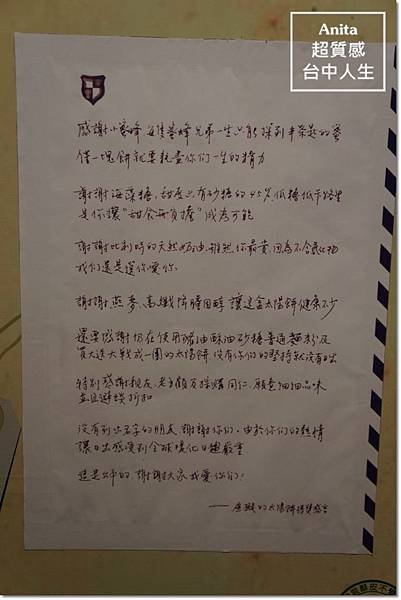 Anita
超質感
台中人生
感謝小蜜蜂 這隻蜜蜂兄弟一生只能採到半茶匙的蜜
僅一塊餅就要耗盡你們一生的精力
謝謝海藻糖,甜度只有砂糖的45%,低糖低卡路里
是你讓"甜食無負擔"成為可能
謝謝比利時的天然奶油,雖然你最貴,因為不含氫化物
我們還是選你愛你.
謝謝燕麥、高纖降膽固醇 讓這盒太陽餅健康不少
還要感謝仍在使用豬油酥油砂糖普通麵粉及
員大送大戰成一團的太陽餅,沒有你們的堅持就沒有日出
特別感謝親友、老主顧及採購同仁,願意細細品味
並且避談折扣
沒有列出名字的朋友,謝謝你們,由於你們的熱情
讓日出感受到全球暖化日趨嚴重
這是真的 謝謝大家 我愛你們!
的太陽餅得獎感言